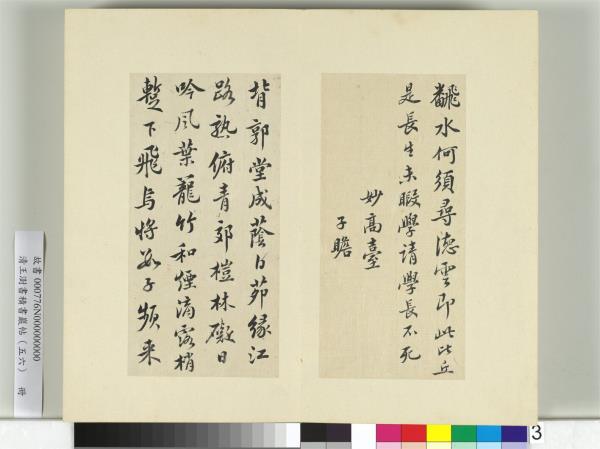 飜水何須尋德雲即此比丘
是長生未暇學請學長不死
妙高臺
子瞻
背郭堂成蔭白茅緣江
路熟俯青郊榿林礙日
吟風葉籠竹和煙滴露梢
暫下飛烏將數子頻來
故書 000776N000000000
清王澍書積書巖帖(五六) 冊
3